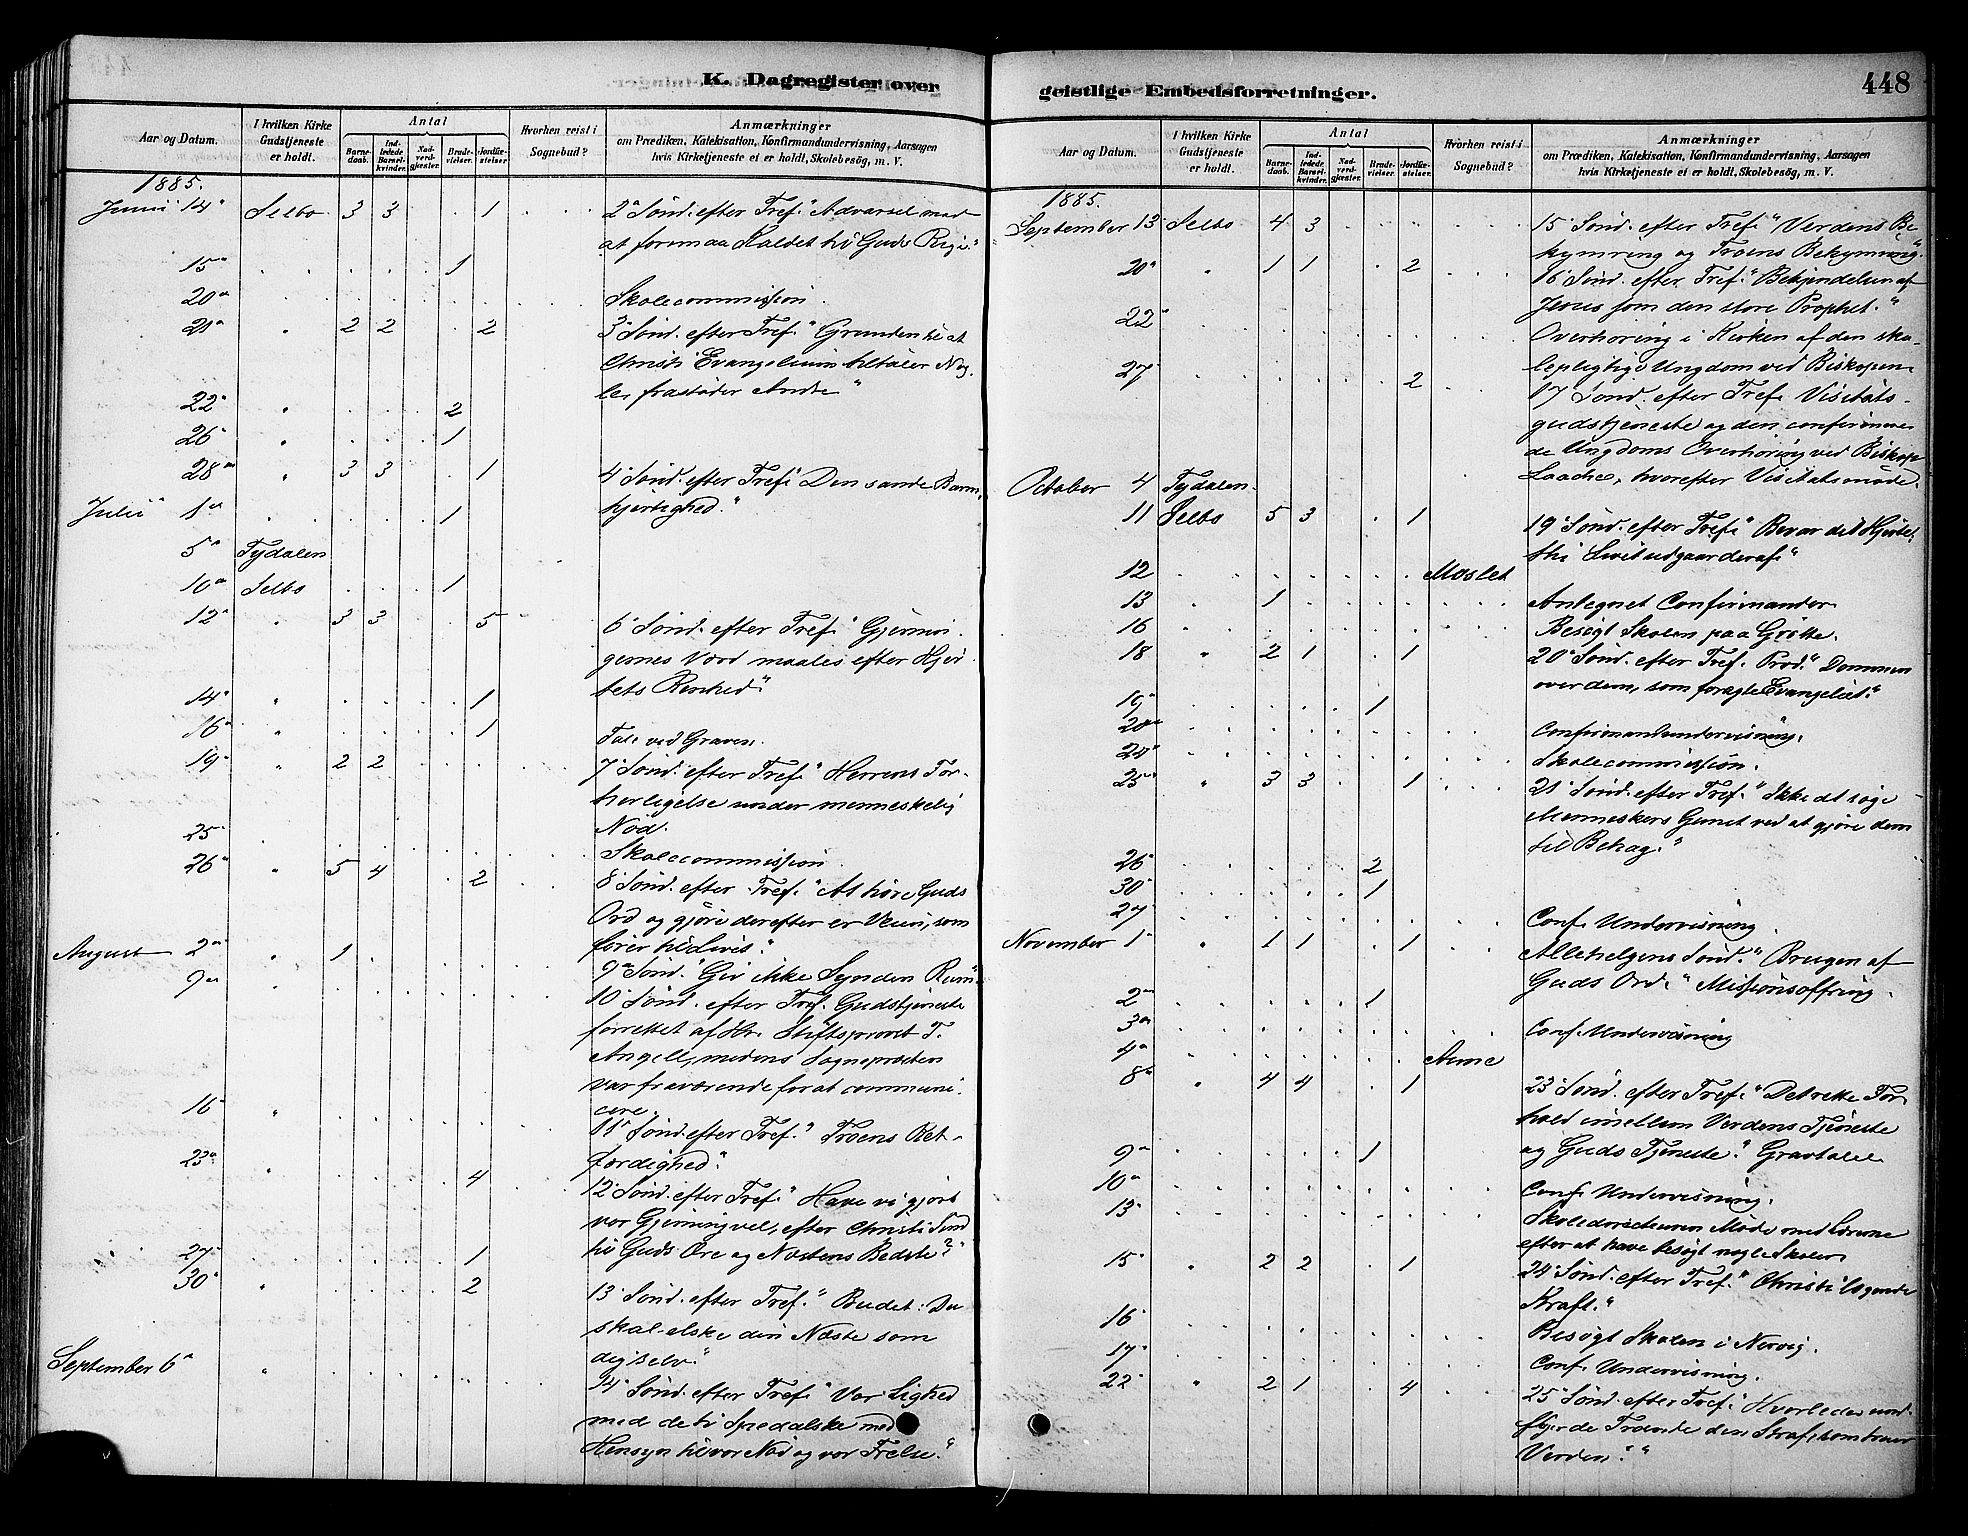 K. Dagregister over
Aar og Datum.
I hvilken Kirke Gudstjeneste er holdt.
Antal
Barnedaab.
Indledede Barselkvinder.
Nadverdgjester.
Brudevielser.
Jordfæstelser
Hvorhen reist i Sognebud?
Anmærkninger
om Prædiken, Katekisation, Konfirmandundervisning, Aarsagen
hvis Kirketjeneste ei er holdt, Skolebesög, m. V.
1885.
Junii 14 Selbo 3 3 1 2 Sönd. efter Tref. "Advarsel mod
at forsmaa Kaldet til Guds Rige."
15 1
20 Skolecommission.
21 " 2 2 2 3 Sönd. efter Tref. "Grunden til at
Christi Evangelium tiltaler Nog-
le, frastöder Andre"
22 " 2
26 " 1
28 " 3 3 1 4 Sönd. efter Tref. Den sande Barm-
hjertighed."
Julii 1 1
5 Tydalen
10 Selbo 1
12 " 3 3 5 6 Sönd. efter Tref. "Gjernin-
gernes Værd maales efter Hjer-
tets Renhed."
14 " 1
16 " 1 Tale ved Graven.
19 " 2 2 7 Sönd. efter Tref. "Herrens For-
herligelse under menneskelig
Nöd.
25 Skolecommission
26 " 5 4 2 8 Sönd. efter Tref. "At höre Guds
Ord og gjöre derefter er Veien, som
förer til Livet."
August 2 " 1 9 Sönd. "Giv ikke Synden Rum"
9 10 Sönd. efter Tref. Gudstjeneste
forrettet af Hr. Stiftsprovst T.
Angell, medens Sognepræsten
var fraværende for at communi-
cere.
16 " 11 Sönd. efter Tref. "Troens Ret-
færdighed."
23 " 4 12 Sönd. efter Tref. "Have vi gjort
vor Gjerning vel, efter Christi Sind
til Guds Ære og Næstens Bedste?"
27 1
30 " 2 13 Sönd. efter Tref. "Budet: Du
skal elske din Næste som
dig selv."
September 6 " 14 Sönd. efter Tref. "Vor Lighed
med de ti Spedalske med
Hensyn til vor Nöd og vor Frelse."
geistlige Embedsforretninger.
448
Aar og Datum.
I hvilken Kirke Gudstjeneste er holdt.
Antal
Barnedaab.
Indledede Barselkvinder.
Nadverdgjester.
Brudevielser.
Jordfæstelser.
Hvorhen reist i Sognebud?
Anmærkninger
om Prædiken, Katekisation, Konfirmandundervisning, Aarsagen
hvis Kirketjeneste ei er holdt, Skolebesög, m. V.
1885.
September 13 Selbo 4 3 15 Sönd. efter Tref. "Verdens Be-
kymring og Troens Bekymring."
20 " 1 1 2 16 Sönd. efter Tref. "Bekjendelsen af
Jesus som den store Prophet."
22 Overhöring i Kirken af den sko-
lepligtige Ungdom ved Biskopen.
27 2 17 Sönd. efter Tref. Visitats-
gudstjeneste og den confirmere-
de Ungdoms Overhöring ved Biskop
Laache, hvorefter Visitatsmöde.
October 4 Tydalen
11 Selbo 5 3 1 19 Sönd. efter Tref. "Bevar dit Hjerte,
thi Livet udgaar deraf."
12 Moslet
13 " 1 Antegnet Confirmander
16 Besögt Skolen paa
18 " 2 1 1 20 Sönd. efter Tref. Præd. "Dommen
over dem, som foragte Evangeliet."
19 1
20 Confirmandundervisning.
24 Skolecommission.
25 " 3 3 1 21 Sönd. efter Tref. "Ikke at söge
Menneskers Gunst ved at gjöre dem
til Behag."
26 2
30 1
27 Conf. Undervisning
November 1 " 1 1 1 Allehelgens Sönd. "Brugen af
Guds Ord." Missionsoffring.
2 1
3 Conf. Undervisning
4 Aune
8 " 4 4 1 23 Sönd. efter Tref. "Det rette For-
hold imellem Verdens Tjeneste
og Guds Tjeneste." Gravtale
9 1
10 Conf. Undervisning.
13 Skoledirecteuren Möde med Lærerne
efter at have besögt nogle Skoler.
15 " 2 2 1 24 Sönd. efter Tref. "Christi lægende
Kraft."
16 Besögt Skolen i Nervig.
17 Conf. Undervisning.
22 " 2 1 4 25 Sönd. efter Tref. "Hvorledes und-
flyr de Troende den Straf, som truer
Verden?"